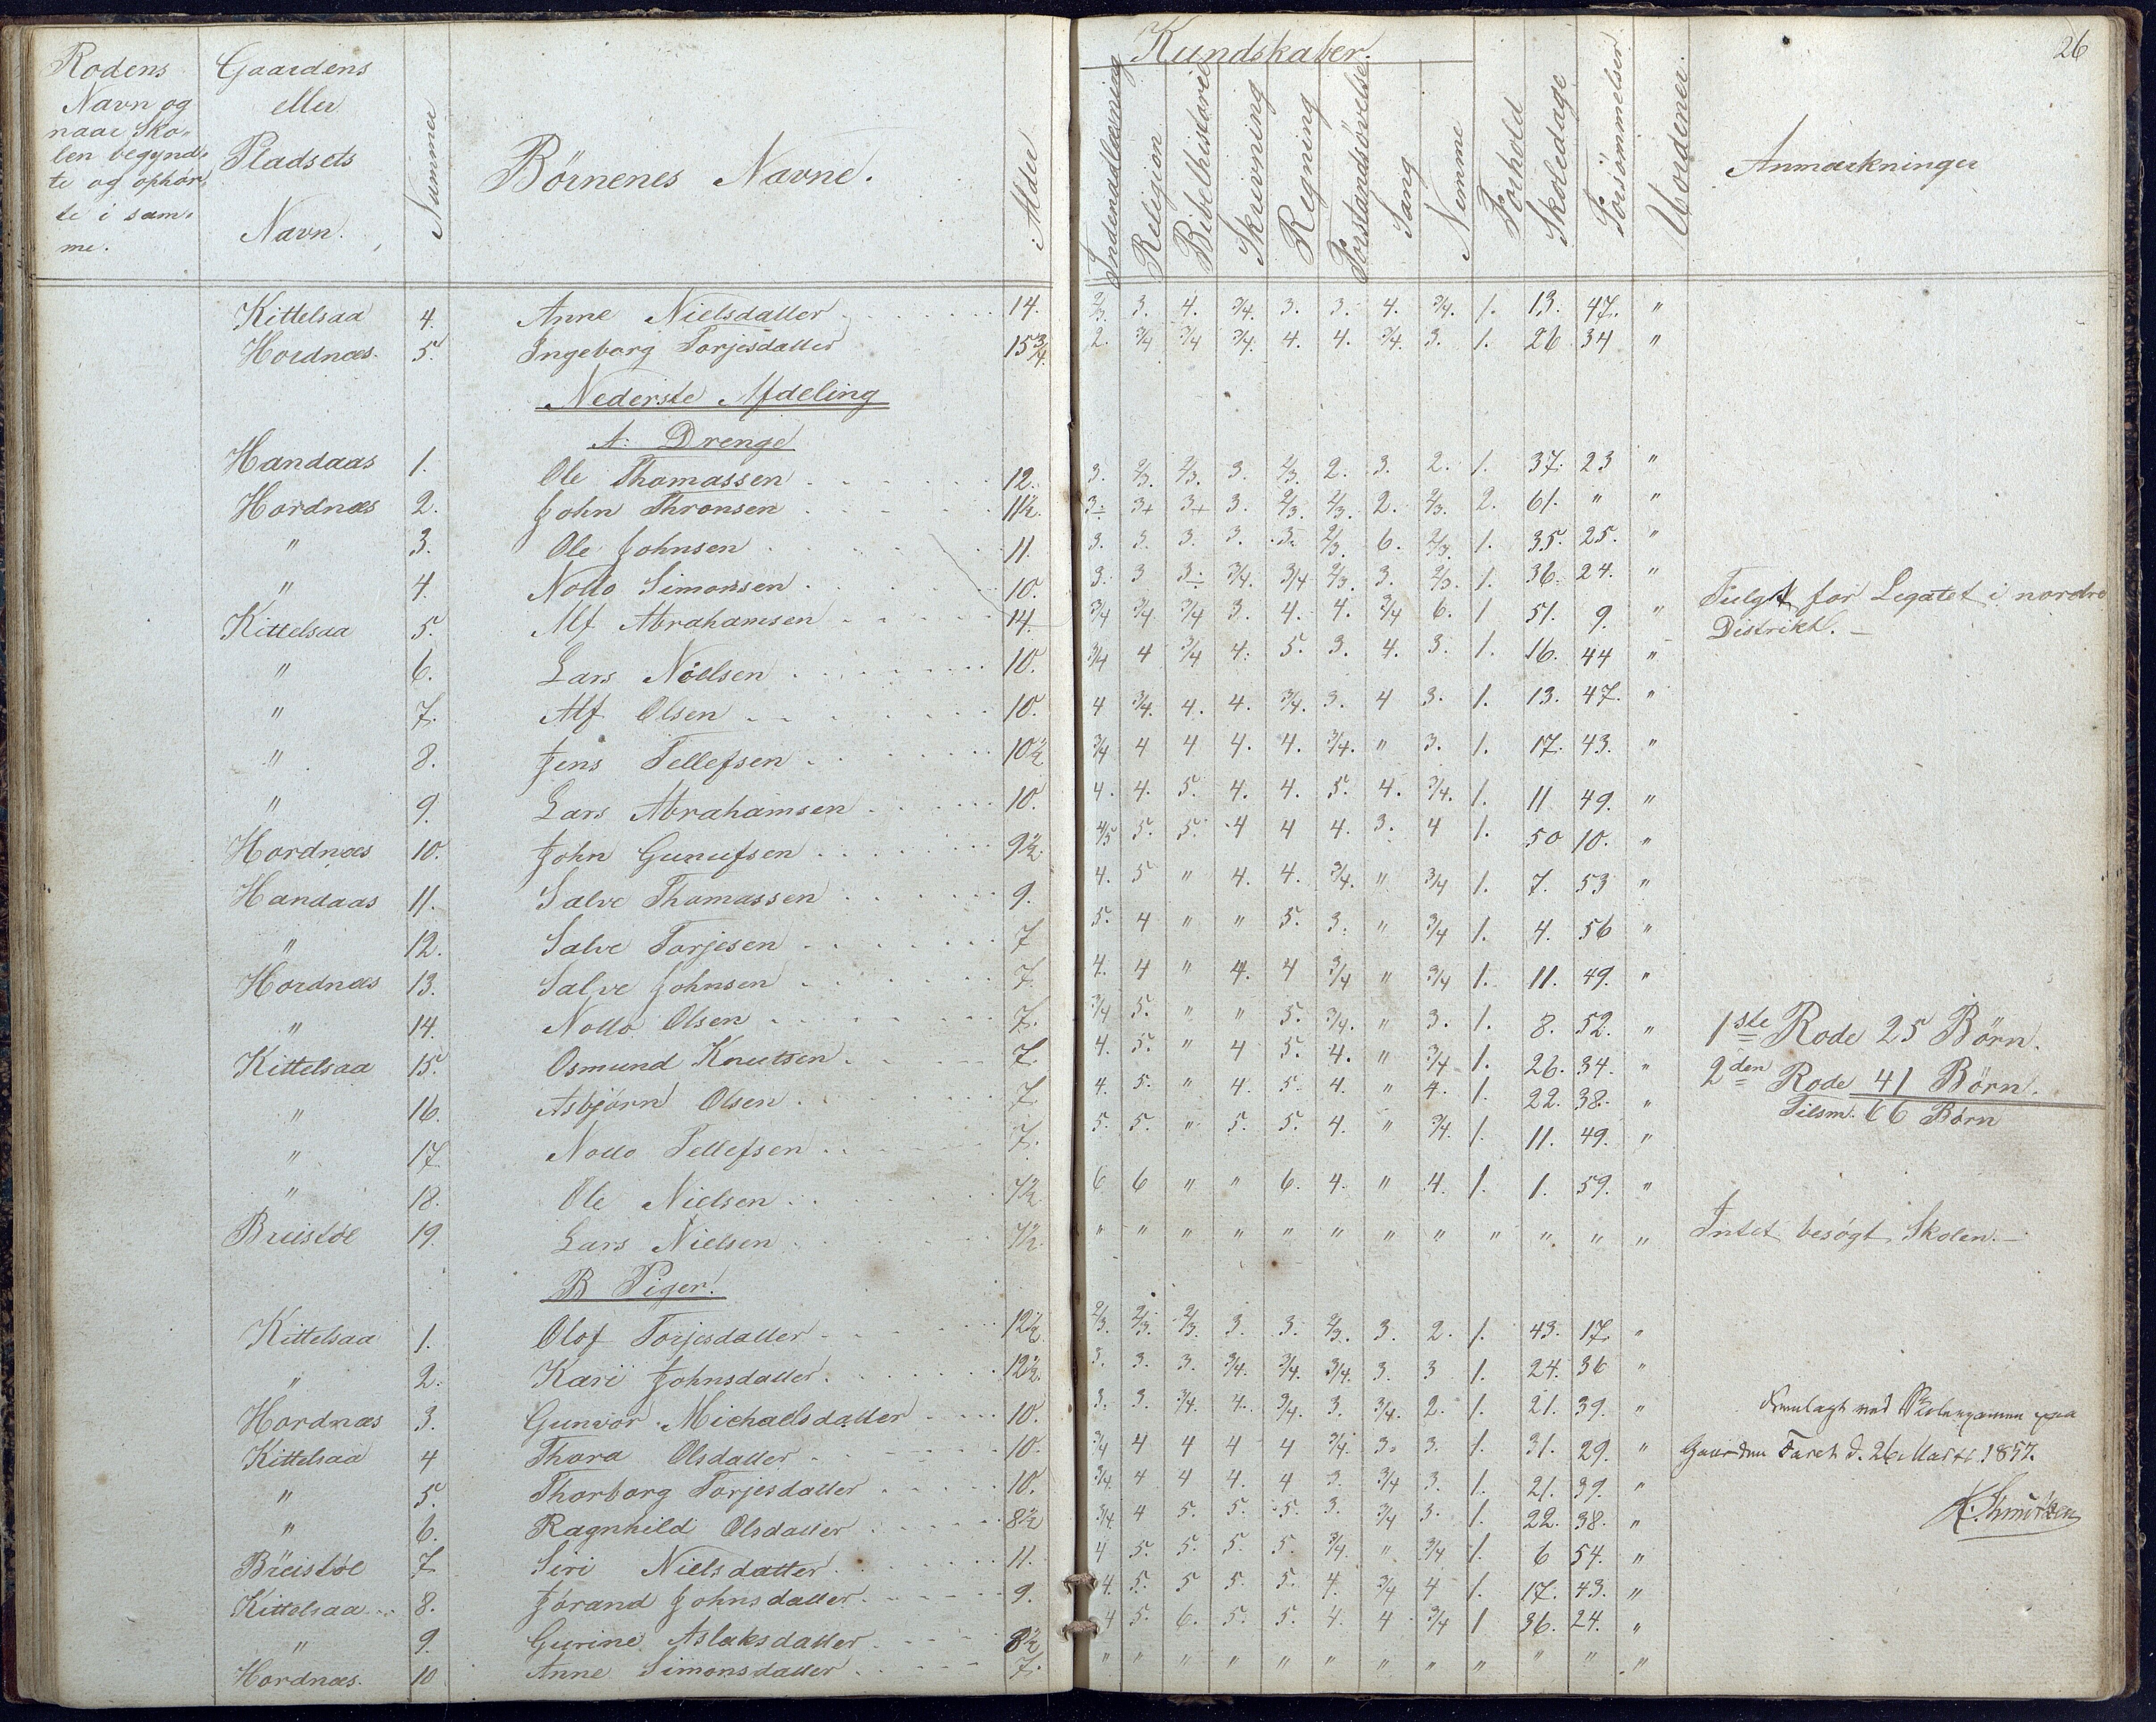 26
Rodens Navn og naar Skolen begyndte og ophørte i samme.
Gaardens eller Pladsets Navn.
Nummer
Børnenes Navne.
Alder
Kundskaber.
Indenadlæsning
Religion
Bibelhistorie
Skrivning
Regning
Forstandsøvelse
Sang
Nemme
Forhold
Skoledage
Forsømmelser
Uordener.
Anmærkninger
Kittelsaa 4. Anne Nielsdatter 14. 2/3. 3. 4. 3/4. 3. 3. 4. 3/4. 1. 13. 47. "
Hordnæs. 5. Ingeborg Torjesdatter 15 3/4. 2. 3/4 3/4 3/4. 4. 4. 3/4. 3. 1. 26 34 "
Nederste Afdeling
A. Drenge
Handaas 1. Ole Thomassen 12. 3. 2/3. 2/3. 3. 2/3. 2. 3. 2. 1. 37. 23 "
Hordnæs 2. John Thronsen 11½. 3÷ 3+ 3+ 3. 2/3. 2/3. 2. 2/3. 2. 61. " "
" 3. Ole Johnsen 11. 3. 3. 3. 3. 3. 2/3. 6. 2/3. 1. 35. 25. "
" 4. Notto Simonsen 10. 3. 3 3÷ 3/4. 3/4 2/3. 3. 2/3. 1. 36. 24. "
Kittelsaa 5. Alf Abrahamsen 14. 3/4 3/4. 3/4 3. 4. 4. 3/4 6. 1 51. 9. " Fulgt for Legatet i nordre
Distrikt. —
" 6. Lars Nielsen 10. 3/4 4 3/4 4. 5. 3. 4. 3. 1. 16. 44 "
" 7. Alf Olsen 10. 4 3/4. 4. 4. 3/4. 3. 4 3. 1. 13. 47. "
" 8. Jens Tellefsen 10½ 3/4 4 4 4. 4. 3/4. " 3. 1. 17. 43. "
" 9. Lars Abrahamsen 10. 4. 4. 5. 4. 4. 5. 4. 3/4. 1. 11 49. "
Hordnæs 10. John Gunufsen 9½. 4/5 5. 5. 4 4 4. 3. 4 1. 50 10. "
Handaas 11. Salve Thomassen 9. 4. 5 " 4. 4. 3/4. " 3/4 1. 7. 53 "
" 12. Salve Torjesen 7 5. 4 " " 5. 3. " 3/4 1. 4. 56 "
Hordnæs 13. Salve Johnsen 7. 4. 4 " 4. 4 3/4 " 3/4 1. 11. 49. "
" 14. Notto Olsen 7. 3/4 5. " " 5. 3/4. " 3. 1. 8. 52. " 1ste Rode 25 Børn.
Kittelsaa 15. Osmund Knutsen 7. 4. 5. " 4 5. 4. " 3/4 1. 26. 34. " 2den Rode 41 Børn.
" 16. Asbjørn Olsen 7. 4. 5. " 4. 5. 4. " 4. 1. 22. 38. " Tilsm. 66 Børn
" 17. Notto Tellefsen 7. 5. 5. " 5. 5. 4. " 3/4. 1. 11. 49. "
" 18. Ole Nielsen 7½ 6 6 " " 6. 4. " 4. 1. 1. 59. "
Breistøl 19. Lars Nielsen 7½. " " " " " " " " " " " " Intet besøgt Skolen. —
B Piger.
Kittelsaa 1. Olof Torjesdatter 12½ 2/3. 2/3. 2/3. 3. 3. 2/3. 3. 2. 1. 43. 17. "
" 2. Kari Johnsdatter 12½. 3. 3. 3. 3/4. 3/4. 3/4. 3. 3 1. 24. 36 "
Hordnæs 3. Gunvor Michaelsdatter 10. 3. 3. 3/4. 4. 3/4. 3. 3/4. 2. 1. 21. 39. " Fremlagt ved Skoleexamen paa
Kittelsaa 4 Thora Olsdatter 10. 3/4 4 4 4 4 3/4. 3. 3. 1. 31. 29. " Gaarden Faret d. 26 Marts 1857.
" 5. Thorborg Torjesdatter 10. 3/4. 4 4 4. 4 3. 3/4 3. 1. 21. 39. "
" 6. Ragnhild Olsdatter 8½ 3/4. 4 5. 5. 5. 3. 3/4 3. 1. 22. 38. "
Breistøl 7. Siri Nielsdatter 11. 4 5. 5. 5. 5. 3/4. " 3/4 1. 6 54. "
Kittelsaa 8. Jørand Johnsdatter 9. 4. 5. 5 5. 5. 4. 3/4 4 1. 17. 43. "
" 9. Gurine Aslaksdatter 8½ 4 5. 6. 5. 5. 4. 4 3/4 1 36. 24. "
Hordnæs. 10 Anne Simonsdatter 7. " " " " " " " " " " " "